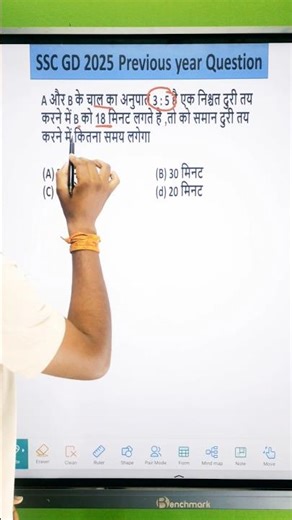 SSC GD 2025 Previous year Question
A और B के चाल का अनुपात 3 : 5 है एक निश्चत दुरी तय
करने में B को 18 मिनट लगते है ,तो को समान दुरी तय
करने में कितना समय लगेगा
(A)
(B) 30 मिनट
(C)
(d) 20 मिनट
Eraser
Clean
Ruler
Shape
Pair Mode
Form
Mind map
Note
Move
Benchmark